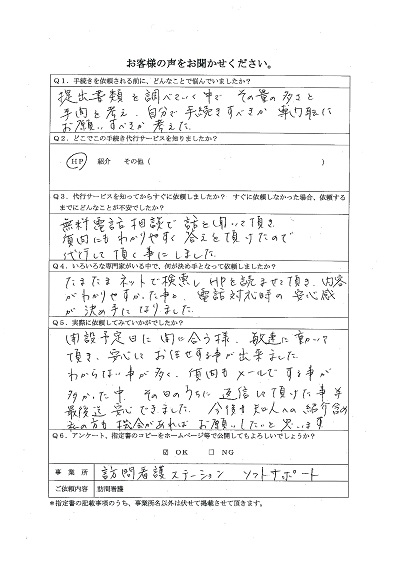 お客様の声をお聞かせください。
Q1．手続きを依頼される前に、どんなことで悩んでいましたか？
提出書類を調べていく中で その量の多さと
手間を考え、自分で手続きすべきか専門家に
お願いすべきか考えた。
Q2．どこでこの手続き代行サービスを知りましたか？
HP 紹介 その他（ ）
Q3．代行サービスを知ってからすぐに依頼しましたか？ すぐに依頼しなかった場合、依頼する
までにどんなことが不安でしたか？
無料電話相談で話を聞いて頂き、
質問にもわかりやすく答えを頂けたので
代行して頂く事にしました。
Q4．いろいろな専門家がいる中で、何が決め手となって依頼しましたか？
たまたまネットで検索しHPを読ませて頂き、内容
がわかりやすかった事と、電話対応時の安心感
が決め手になりました。
Q5．実際に依頼してみていかがでしたか？
開設予定日に間に合う様、敏速に動いて
頂き、安心してお任せする事が出来ました。
わからない事が多く、質問もメールでする事が
多かった中、その日のうちに返信して頂けた事等
最後迄安心できました。今後も知人への紹介含め
私の方も機会があればお願いしたいと思います
Q6．アンケート、指定書のコピーをホームページ等で公開してもよろしいでしょうか？
☑ OK □ NG
事業所 訪問看護ステーション ソフトサポート
ご依頼内容 訪問看護
＊指定書の記載事項のうち、事業所名以外は伏せて掲載させて頂きます。